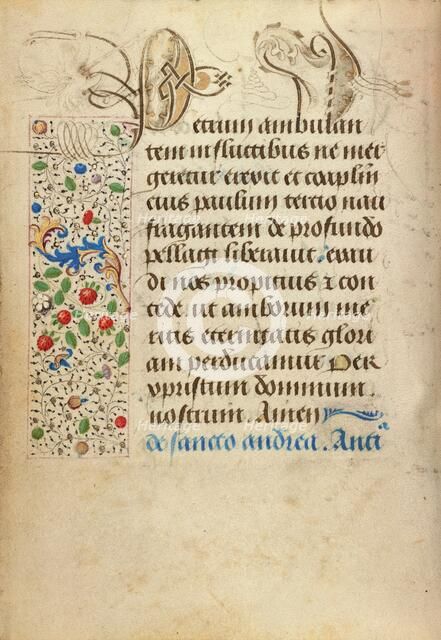 Petrum ambulan
tem in fluctibus ne mer
geretur erexit et coaplm
eius paulum tercio nau
fragantem de profundo
pellagi liberauit exau
di nos propicius & con
cede. ut amborum me
ritis eternitatis glori
am perducamur Per
xpristum dominum
nostrum. Amen
de sancto andrea. Anti.a
Heritage
Heritage
Heritage
Heritage
Heritage